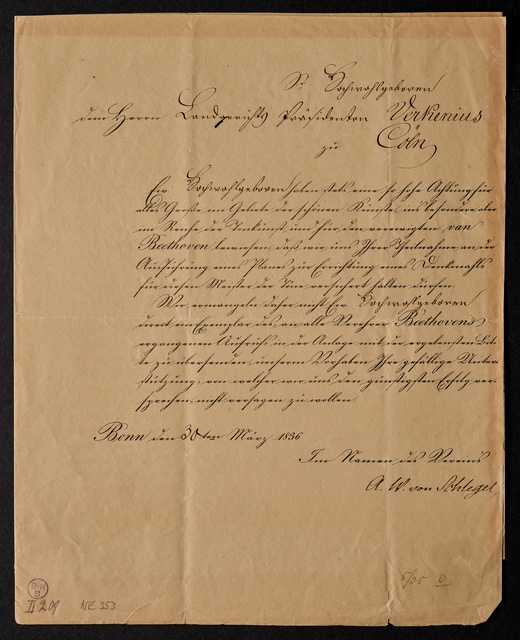 Sr Hochwohlgeboren
dem Herrn Landgerichts Präsidenten Verkenius
zu Cöln
Ew. Hochwohlgeboren haben stets eine so hohe Achtung für
alles Große im Gebiete der schönen Künste, ins besondere aber
im Reiche der Tonkunst und für den verewigten van
Beethoven bewiesen, daß wir uns Ihrer Theilnahme an der
Ausführung eines Planes zur Errichtung eines Denkmahls
für diesen Meister der Töne versichert halten dürfen.
Wir ermangeln daher nicht Ew. Hochwohlgeboren
direct ein Exemplar des an alle Verehrer Beethovens
ergangenen Aufrufs in der Anlage mit der ergebensten Bit-
te zu übersenden, unserm Vorhaben Ihre gefällige Unter-
stützung, von welcher wir uns den günstigsten Erfolg ver-
sprechen, nicht versagen zu wollen.
Bonn den 30ten März 1836
Im Namen des Vereins
A. W. von Schlegel
II 209 NE 353